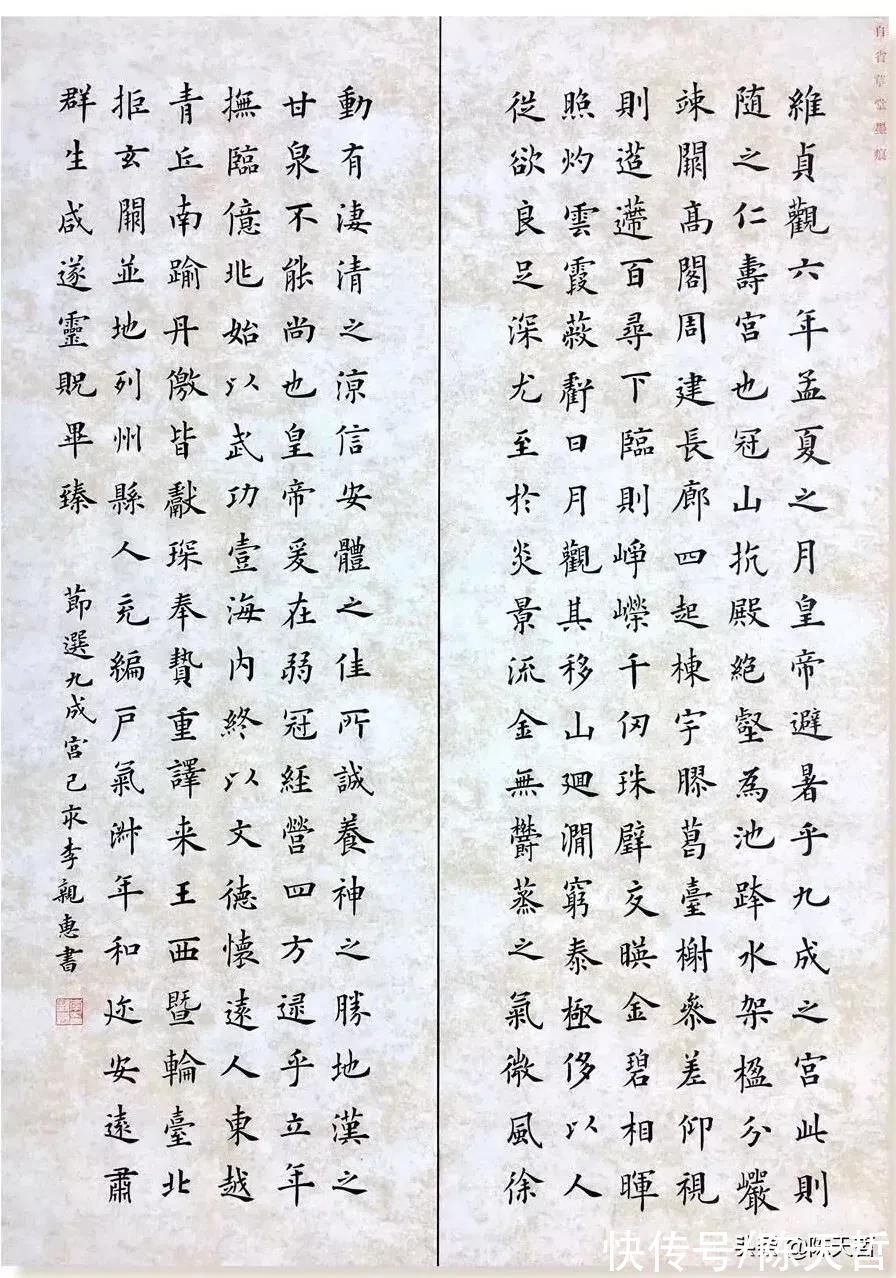 維貞觀六年孟夏之月皇帝避暑乎九成之宮此則
随之仁壽宮也冠山抗殿絕壑為池跨水架楹分巖
竦闕高閣周建長廊四起棟宇膠葛臺榭參差仰視
則迢遰百尋下臨則崢嶸千仞珠壁交暎金碧相暉
照灼雲霞蔽虧日月觀其移山廻澗窮泰極侈以人
従欲良足深尤至於炎景流金無欝蒸之氣微風徐
動有淒清之涼信安體之佳所誠養神之勝地漢之
甘泉不能尚也皇帝爰在弱冠經營四方逮乎立年
撫臨億兆始以武功壹海內終以文德懷遠人東越
青丘南踰丹儌皆獻琛奉贄重譯来王西暨輪臺北
拒玄闕並地列州縣人充編戶氣淋年和迩安遠肅
群生咸遂靈貺畢臻
節選九成宮己亥李親惠書
自省草堂墨痕
快传号/陈天哲
头条 @陈天哲